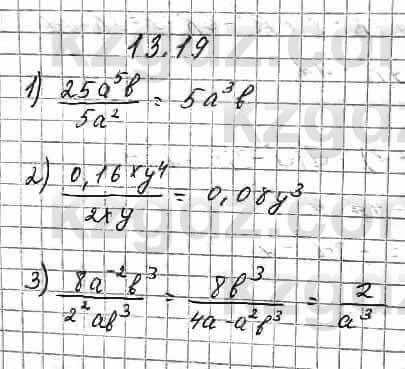 13.19
1) 25a⁵b / 5a² = 5a³b
2) 0,16xy⁴ / 2xy = 0,08y³
3) 8a⁻²b³ / 2²ab³ = 8b³ / 4a·a²b³ = 2 / a³
kzgdz.com